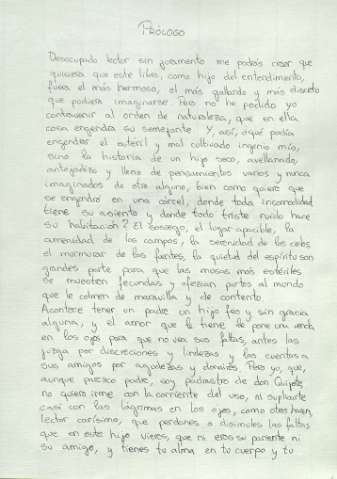 PRÓLOGO
Desocupado lector sin juramento me podrás creer que
quisiera que este libro, como hijo del entendimiento,
fuera el más hermoso, el más gallardo y más discreto
que pudiera imaginarse. Pero no he podido yo
contravenir al orden de naturaleza, que en ella
cosa engendra su semejante. Y, así, ¿qué podía
engendrar el estéril y mal cultivado ingenio mío,
sino la historia de un hijo seco, avellanado,
antojadizo y lleno de pensamientos varios y nunca
imaginados de otro alguno, bien como quien que
se engendró en una cárcel, donde toda incomodidad
tiene su asiento y donde todo triste ruido hace
su habitación? El sosiego, el lugar apacible, la
amenidad de los campos, la serenidad de los cielos
el murmurar de las fuentes, la quietud del espíritu son
grandes parte para que las musas más estériles
se muestren fecundas y ofrezcan partos al mundo
que le colmen de maravilla y de contento.
Acontece tener un padre un hijo feo y sin gracia
alguna, y el amor que le tiene le pone una venda
en los ojos para que no vea sus faltas, antes las
juzga por discreciones y lindezas y las cuenta a
sus amigos por agudezas y donaires. Pero yo, que,
aunque parezco padre, soy padrastro de don Quijote,
no quiero irme con la corriente del uso, ni suplicarte
casi con las lágrimas en los ojos, como otros hacen,
lector carísimo, que perdones o disimules las faltas
que en este hijo vieres, que ni eres su pariente ni
su amigo, y tienes tu alma en tu cuerpo y tu